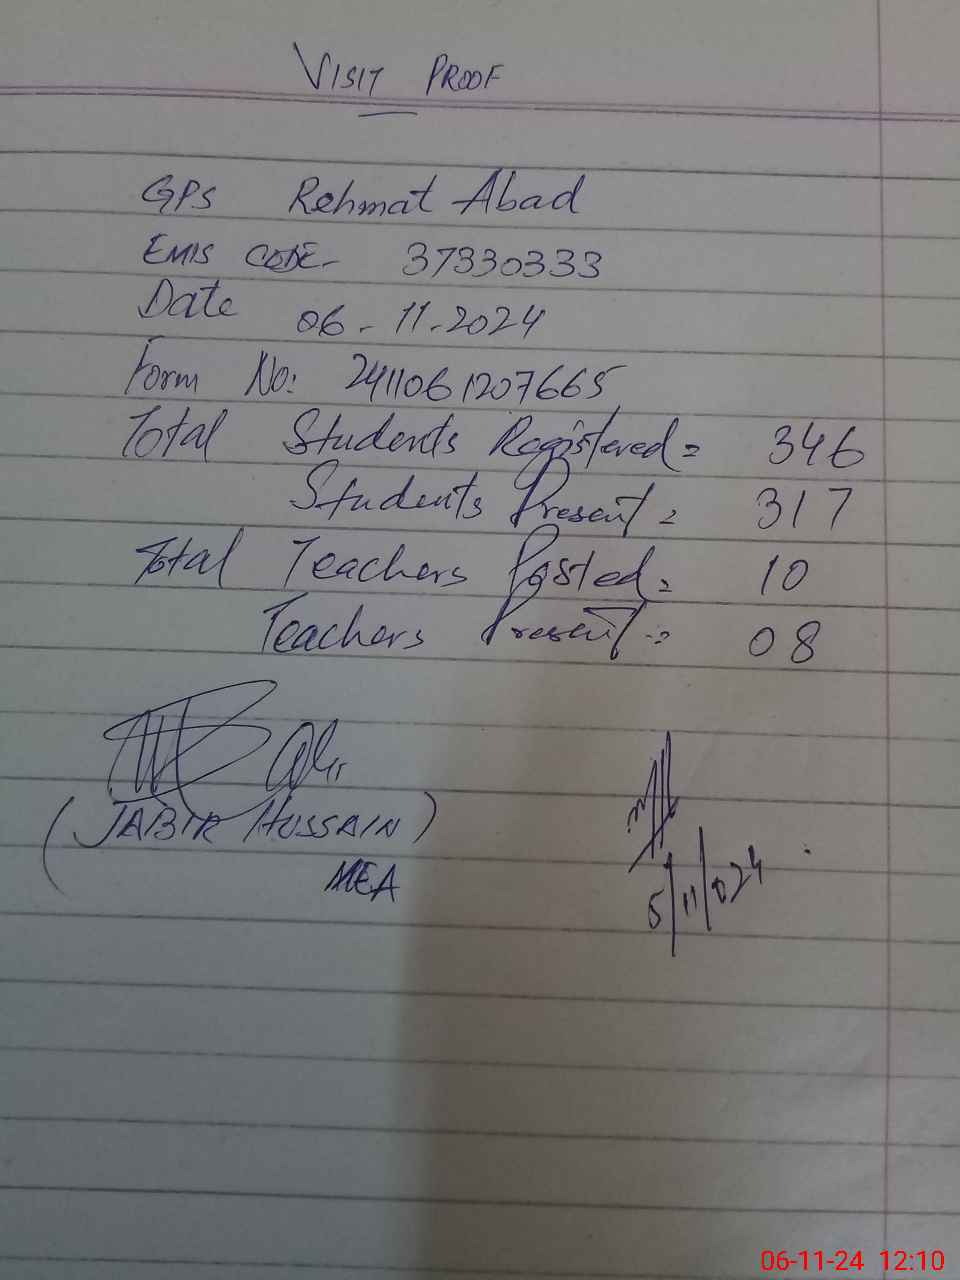 VISIT PROOF
GPS Rehmat Abad
EMIS CODE- 37330333
Date 06-11-2024
Form No: 2411061207665
Total Students Registered= 346
Students Present= 317
Total Teachers Posted= 10
Teachers Present= 08
(JABIR HUSSAIN)
MEA
5/11/024
06-11-24 12:10